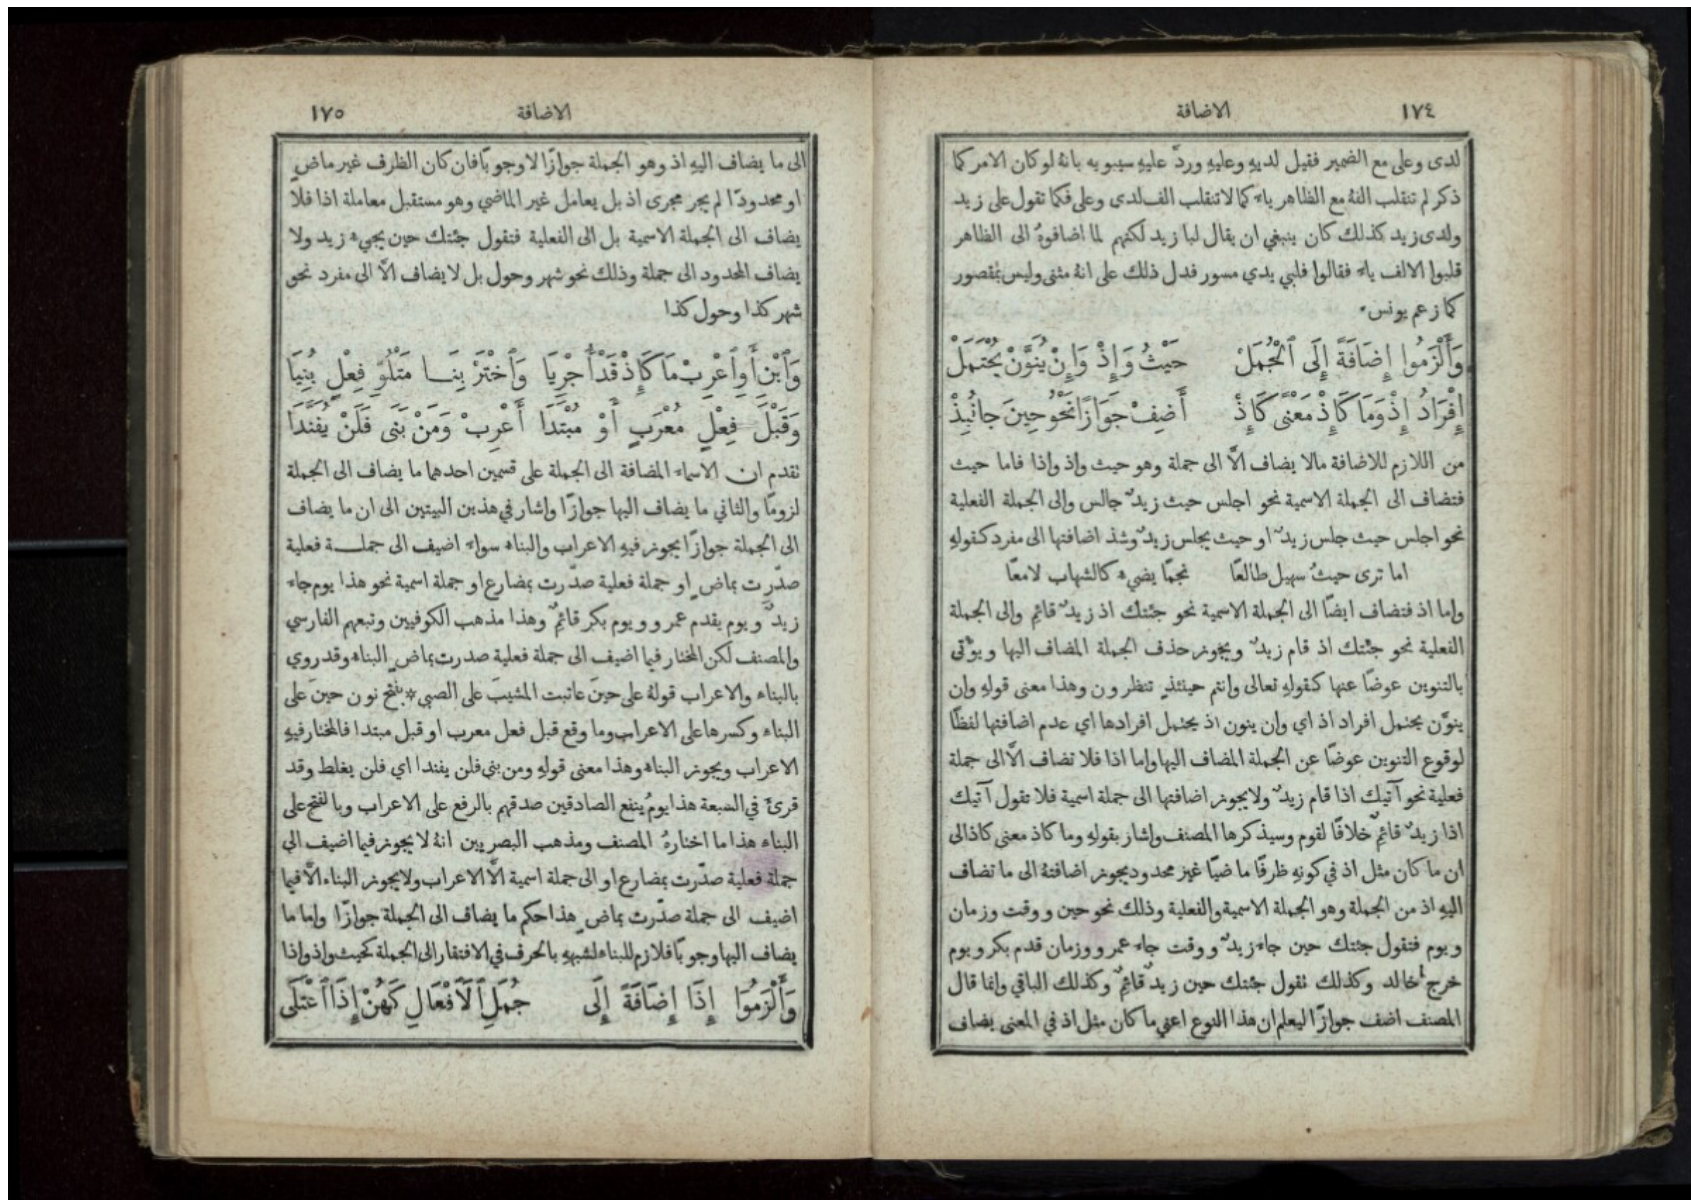 ١٧٤
الاضافة
لدى وعلى مع الضمير فقيل لديهِ وعليهِ وردَّ عليهِ سيبويه بانهُ لوكان الامركما
ذكر لم تنقلب الفهُ مع الظاهر ياء كما لا تنقلب الف لدى وعلى فكما تقول على زيد
ولدى زيد كذلك كان ينبغي ان يقال لبا زيد لكنهم لما اضافوهُ الى الظاهر
قلبوا الالف ياء فقالوا فلبي يدي مسور فدل ذلك على انهُ مثنى وليس بمقصور
كما زعم يونس
وَأَلْزَمُوا إِضَافَةً إِلَى ٱلْجُمَلْ حَيْثُ وَإِذْ وَإِنْ يُنَوَّنْ يُحْتَمَلْ
إِفْرَادُ إِذْ وَمَا كَإِذْ مَعْنًى كَإِذْ أَضِفْ جَوَازًا نَحْوُ حِينَ جَا نُبِذْ
من اللازم للاضافة مالا يضاف الَّا الى جملة وهو حيث واذ واذا فاما حيث
فتضاف الى الجملة الاسمية نحو اجلس حيث زيدٌ جالس والى الجملة الفعلية
نحو اجلس حيث جلس زيدٌ او حيث يجلس زيدٌ وشذ اضافتها الى مفرد كقولهِ
اما ترى حيثُ سهيل طالعًا نجمًا يضيء كالشهاب لامعًا
واما اذ فتضاف ايضًا الى الجملة الاسمية نحو جئتك اذ زيدٌ قائمٌ والى الجملة
الفعلية نحو جئتك اذ قام زيدٌ ويجوز حذف الجملة المضاف اليها ويؤتى
بالتنوين عوضًا عنها كقولهِ تعالى وانتم حينئذٍ تنظرون وهذا معنى قولهِ وإن
ينوَّن يحتمل افراد اذ اي وإن ينون اذ يحتمل افرادها اي عدم اضافتها لفظًا
لوقوع التنوين عوضًا عن الجملة المضاف اليها واما اذا فلا تضاف الَّا الى جملة
فعلية نحو آتيك اذا قام زيدٌ ولا يجوز اضافتها الى جملة اسمية فلا تقول آتيك
اذا زيدٌ قائمٌ خلافًا لقوم وسيذكرها المصنف واشار بقولهِ وما كاذ معنى كاذ الى
ان ما كان مثل اذ في كونهِ ظرفًا ماضيًا غير محدود يجوز اضافتهُ الى ما تضاف
اليهِ اذ من الجملة وهو الجملة الاسمية والفعلية وذلك نحو حين ووقت وزمان
ويوم فتقول جئتك حين جاء زيدٌ ووقت جاء عمرو وزمان قدم بكر ويوم
خرج خالد وكذلك نقول جئتك حين زيدٌ قائمٌ وكذلك الباقي وانما قال
المصنف اضف جوازًا ليعلم ان هذا النوع اعني ما كان مثل اذ في المعنى يضاف
١٧٥
الاضافة
الى ما يضاف اليهِ اذ وهو الجملة جوازًا لا وجوبًا فان كان الظرف غير ماضٍ
او محدودًا لم يجر مجرى اذ بل يعامل غير الماضي وهو مستقبل معاملة اذا فلا
يضاف الى الجملة الاسمية بل الى الفعلية فتقول جئتك حين يجيء زيد ولا
يضاف المحدود الى جملة وذلك نحو شهر وحول بل لا يضاف الَّا الى مفرد نحو
شهر كذا وحول كذا
وَٱبْنِ أَوِ ٱعْرِبْ مَا كَإِذْ قَدْ أُجْرِيَا وَٱخْتَرْ بِنَـا مَتْلُوِّ فِعْلٍ بُنِيَا
وَقَبْلَ فِعْلٍ مُعْرَبٍ أَوْ مُبْتَدَا أَعْرِبْ وَمَنْ بَنَى فَلَنْ يُفَنَّدَا
نقدم ان الاسماء المضافة الى الجملة على قسمين احدهما ما يضاف الى الجملة
لزومًا والثاني ما يضاف اليها جوازًا واشار في هذين البيتين الى ان ما يضاف
الى الجملة جوازًا يجوز فيهِ الاعراب والبناء سواء اضيف الى جملـة فعلية
صدّرت بماضٍ او جملة فعلية صدّرت بمضارع او جملة اسمية نحو هذا يوم جاء
زيدٌ ويوم يقدم عمرو ويوم بكر قائمٌ وهذا مذهب الكوفيين وتبعهم الفارسي
والمصنف لكن المختار فيما اضيف الى جملة فعلية صدرت بماضٍ البناء وقد روي
بالبناء والاعراب قولهُ على حينَ عاتبت المشيبَ على الصبي * بفتح نون حينَ على
البناء وكسرها على الاعراب وما وقع قبل فعل معرب او قبل مبتدا فالمختار فيهِ
الاعراب ويجوز البناء وهذا معنى قولهِ ومن بني فلن يفندا اي فلن يغلط وقد
قرئ في السبعة هذا يومُ ينفع الصادقين صدقهم بالرفع على الاعراب وبالفتح على
البناء هذا ما اختارهُ المصنف ومذهب البصريين انهُ لا يجوز فيما اضيف الى
جملة فعلية صدّرت بمضارع او الى جملة اسمية الَّا الاعراب ولا يجوز البناء الَّا فيما
اضيف الى جملة صدّرت بماضٍ هذا حكم ما يضاف الى الجملة جوازًا واما ما
يضاف اليها وجوبًا فلازم للبناء لشبههِ بالحرف في الافتقار الى الجملة كحيث واذ واذا
وَأَلْزَمُوا إِذَا إِضَافَةً إِلَى جُمَلِ ٱلَأَفْعَالِ كَهُنْ إِذَا ٱعْتَلَى